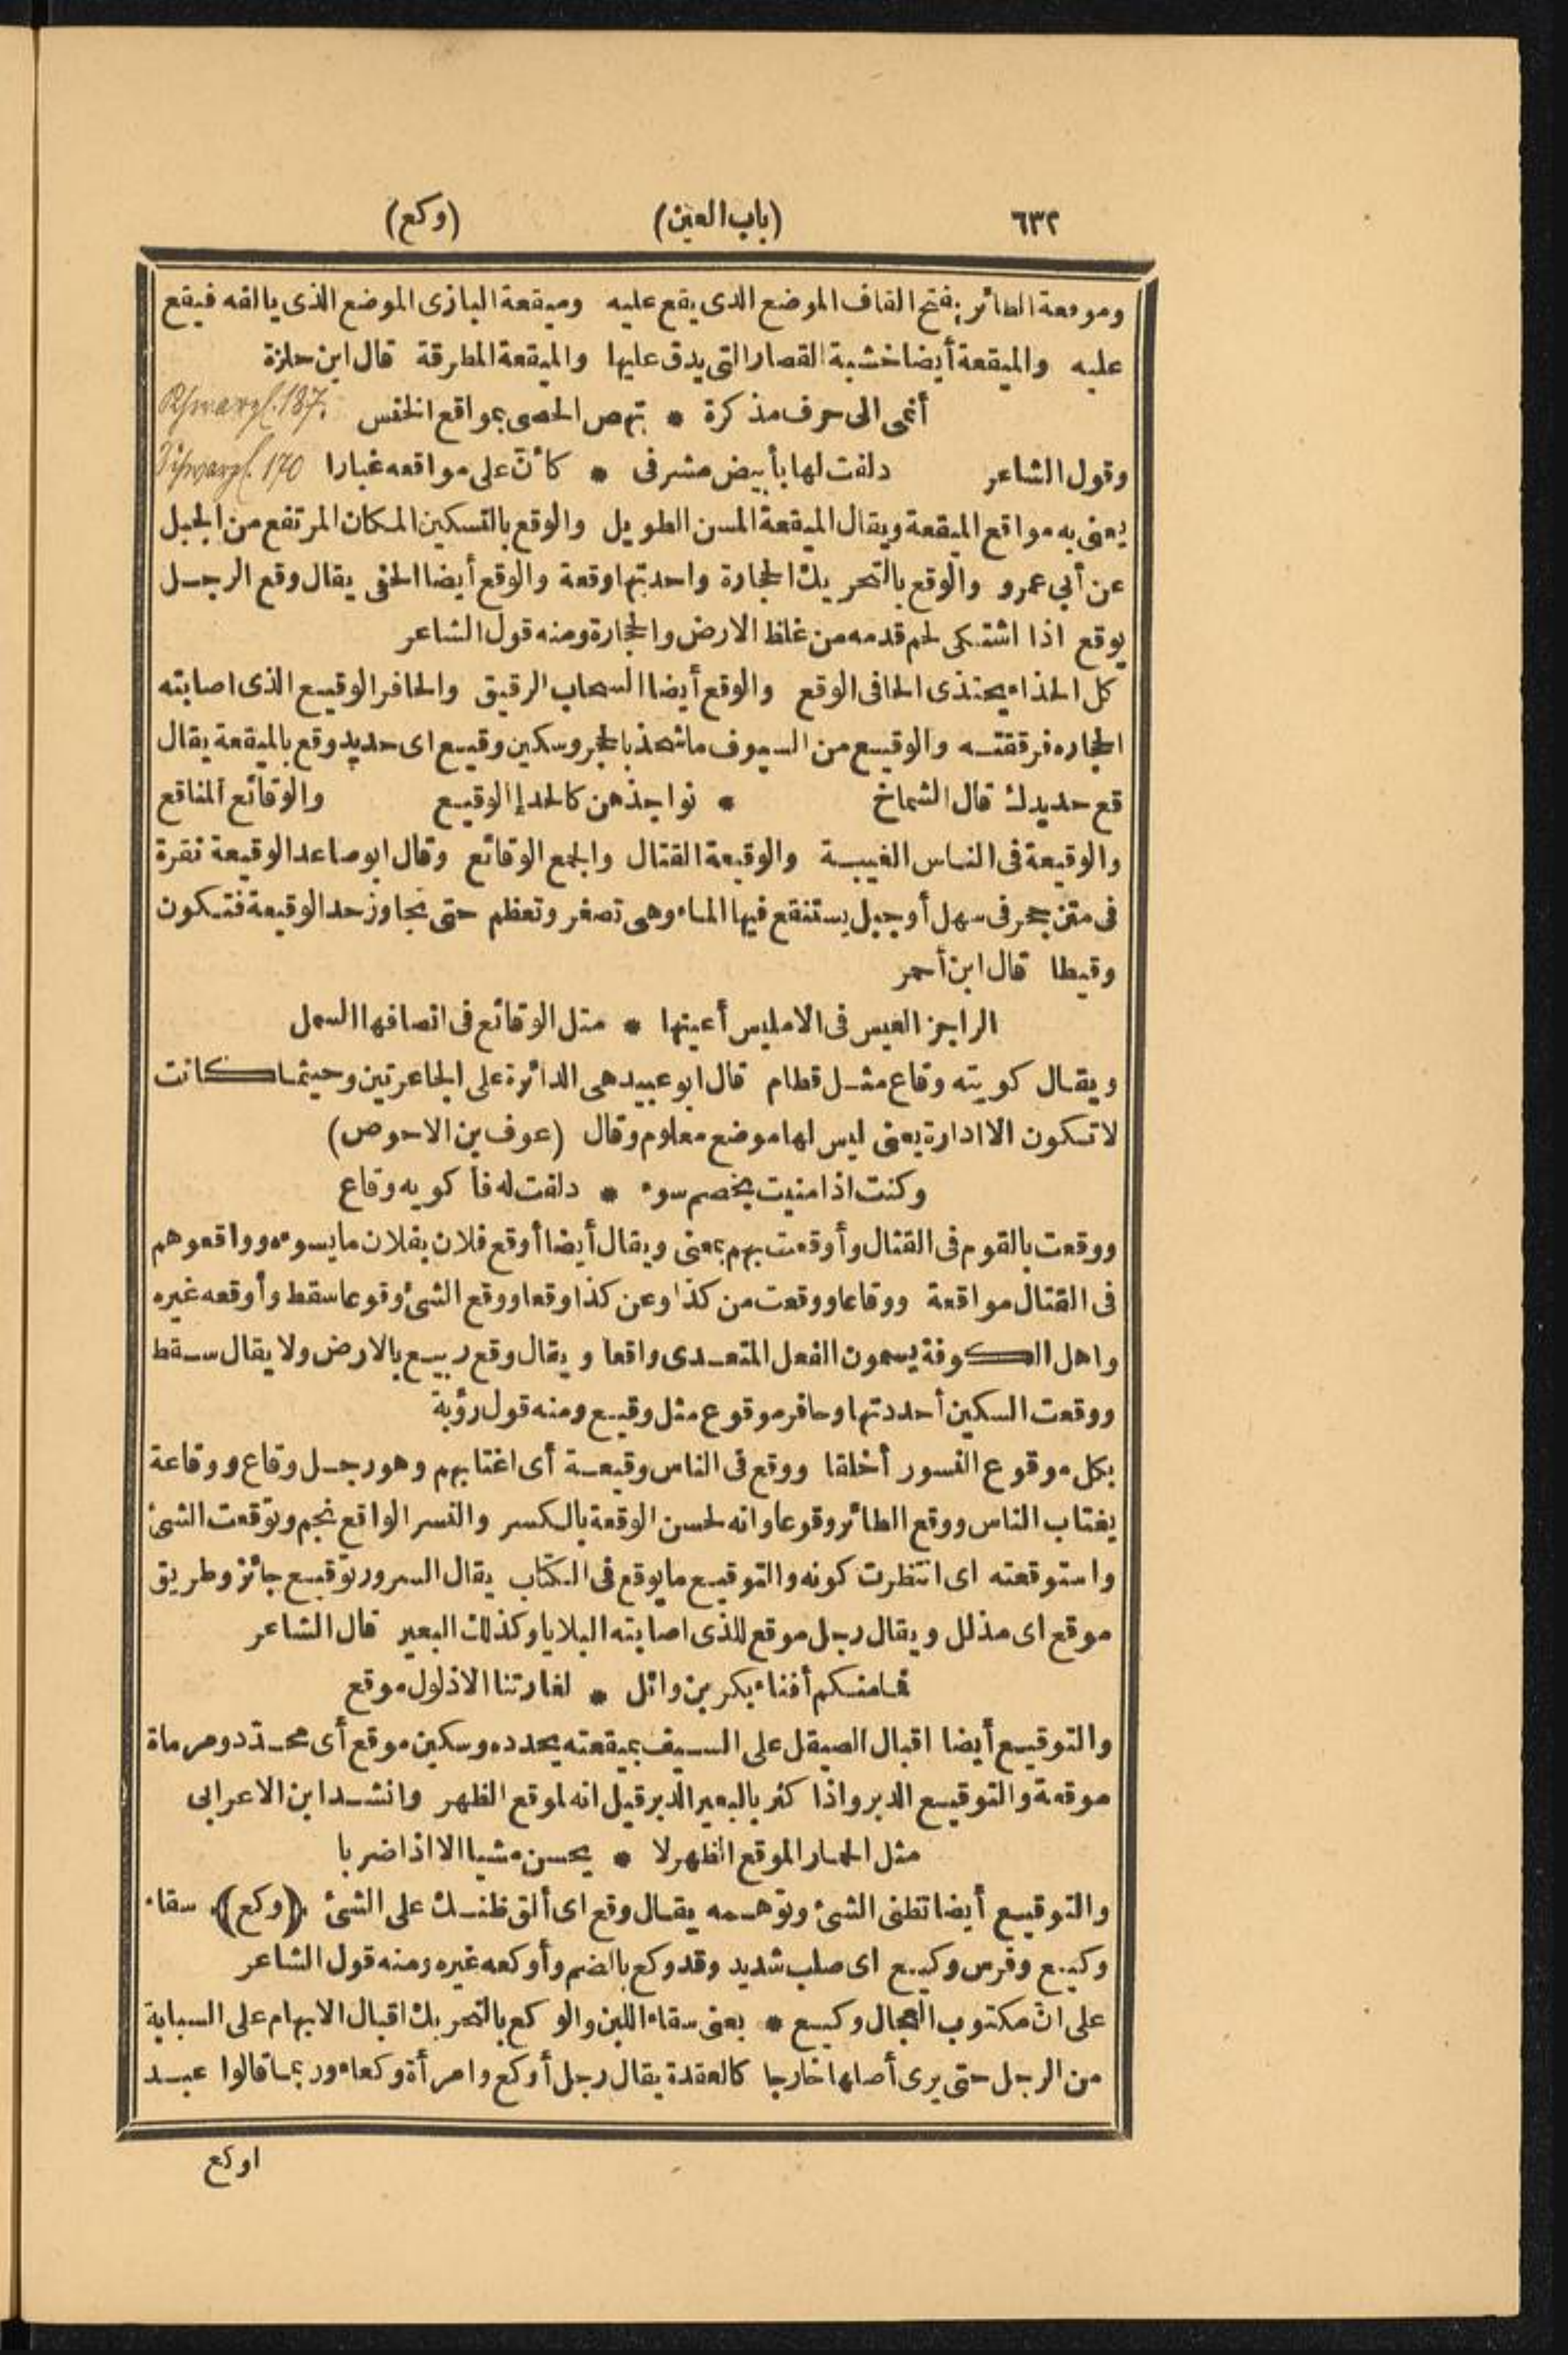 ٦٣٢ (باب العين) (وكع)
وموقعة الطائر بفتح القاف الموضع الذى يقع عليه وميقعة البازى الموضع الذى يالفه فيقع
عليه والميقعة أيضا خشبة القصار التى يدق عليها والميقعة المطرقة قال ابن حلزة
أنمى الى حرف مذكرة * تهص الحصى بمواقع الخنس 187.
وقول الشاعر دلفت لها بأبيض مشرفى * كأنّ على مواقعه غبارا Schwarzl. 170
يعنى به مواقع الميقعة ويقال الميقعة المسن الطويل والوقع بالتسكين المكان المرتفع من الجبل
عن أبى عمرو والوقع بالتحريك الحجارة واحدتها وقعة والوقع أيضا الحفى يقال وقع الرجل
يوقع اذا اشتكى لحم قدمه من غلظ الارض والحجارة ومنه قول الشاعر
كل الحذاء يحتذى الحافى الوقع والوقع أيضا السحاب الرقيق والحافر الوقيع الذى اصابته
الحجاره فرققته والوقيع من السيوف ما شحذ بالحجر وسكين وقيع اى حديد وقع بالميقعة يقال
قع حديدك قال الشماخ * نواجذهن كالحدإ الوقيع والوقائع المناقع
والوقيعة فى الناس الغيبة والوقيعة القتال والجمع الوقائع وقال ابو صاعد الوقيعة نقرة
فى متن حجر فى سهل أو جبل يستنقع فيها الماء وهى تصغر وتعظم حتى تجاوز حد الوقيعة فتكون
وقيطا قال ابن أحمر
الراجز العيس فى الامليس أعينها * مثل الوقائع فى انصافها السمل
ويقال كويته وقاع مثل قطام قال ابو عبيد هى الدائرة على الجاعرتين وحيثما كانت
لا تكون الا ادارة يعنى ليس لها موضع معلوم وقال (عوف بن الاحوص)
وكنت اذا منيت بخصم سوء * دلفت له فأكويه وقاع
ووقعت بالقوم فى القتال وأوقعت بهم بمعنى ويقال أيضا أوقع فلان بفلان ما يسوءه وواقعوهم
فى القتال مواقعة ووقاعا ووقعت من كذا وعن كذا وقعا ووقع الشئ وقوعا سقط وأوقعه غيره
واهل الكوفة يسمون الفعل المتعدى واقعا ويقال وقع ربيع بالارض ولا يقال سقط
ووقعت السكين أحددتها وحافر موقوع مثل وقيع ومنه قول رؤبة
بكل موقوع النسور أخلقا ووقع فى الناس وقيعة أى اغتابهم وهو رجل وقاع ووقاعة
يغتاب الناس ووقع الطائر وقوعا وانه لحسن الوقعة بالكسر والنسر الواقع نجم وتوقعت الشئ
واستوقعته اى انتظرت كونه والتوقيع ما يوقع فى الكتاب يقال السرور توقيع جائز وطريق
موقع اى مذلل ويقال رجل موقع للذى اصابته البلايا وكذلك البعير قال الشاعر
فما منكم أفناء بكر بن وائل * لغارتنا الا ذلول موقع
والتوقيع أيضا اقبال الصيقل على السيف بميقعته يحدده وسكين موقع أى محدّد ومرماة
موقعة والتوقيع الدبر واذا كثر بالبعير الدبر قيل انه لموقع الظهر وانشد ابن الاعرابى
مثل الحمار الموقع الظهر لا * يحسن مشيا الا اذا ضربا
والتوقيع أيضا تظنى الشئ وتوهمه يقال وقع اى ألق ظنك على الشئ (وكع) سقاء
وكيع وفرس وكيع اى صلب شديد وقد وكع بالضم وأوكعه غيره ومنه قول الشاعر
على انّ مكتوب العجال وكيع * يعنى سقاء اللبن والوكع بالتحريك اقبال الابهام على السبابة
من الرجل حتى يرى أصلها خارجا كالعقدة يقال رجل أوكع وامرأة وكعاء وربما قالوا عبد
اوكع